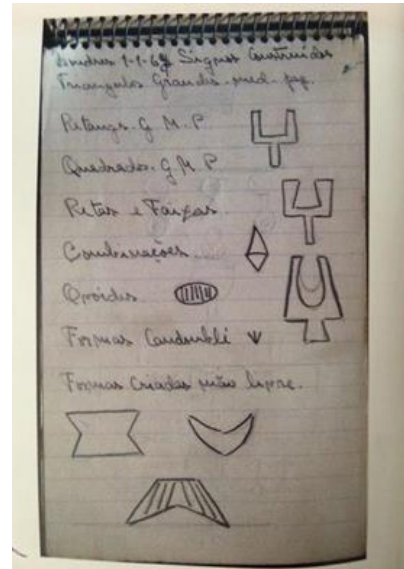 Londres 1-1-69 Signos Construidos
Triangulos Grandes. med. peq.
Retangs. G M. P
Quadrados. G M. P
Retas e Faixas.
Combinações
Ovoides
Formas Candomblé
Formas Criadas mão livre.